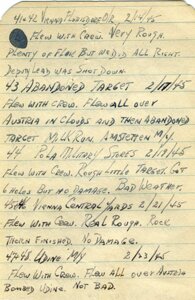 41&42 Vienna Floridsdorf O/R 2/14/45
Flew with Crew. Very Rough.
Plenty of Flak But we Did All Right.
Deputy Lead was Shot Down.
43 Abandoned Target 2/17/45
Flew with Crew. Flew all over
Austria in Clouds and then Abandoned
Target. Milk Run. Amstetten M/Y.
44 Pola Military Stores 2/19/45
Flew with Crew. Rough Little Target. Got
Holes But no Damage. Bad Weather.
Vienna Central Yards 2/21/45
Flew with Crew. Real Rough. Rock
Thorn Finished. No Damage.
Udine M/Y 2/23/45
Flew with Crew. Flew all over Austria
Bombed Udine. Not Bad.